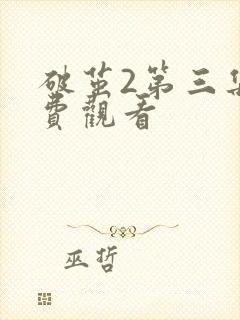 破茧2第三集
費觀看
巫哲